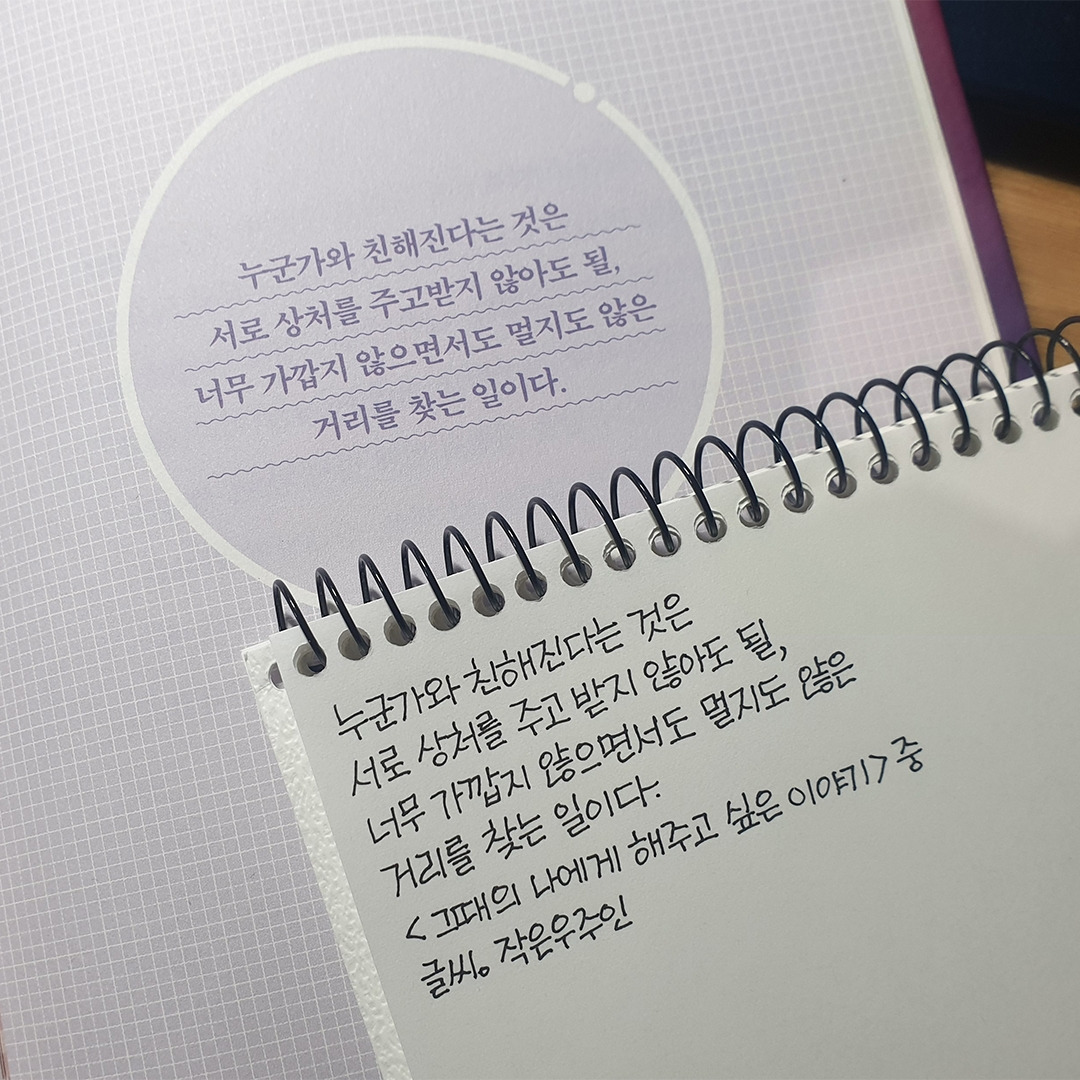 누군가와 친해진다는 것은
서로 상처를 주고받지 않아도 될,
너무 가깝지 않으면서도 멀지도 않은
거리를 찾는 일이다.
누군가와 친해진다는 것은
서로 상처를 주고 받지 않아도 될,
너무 가깝지 않으면서도 멀지도 않은
거리를 찾는 일이다.
<그때의 나에게 해주고 싶은 이야기> 중
글씨。 작은우주인